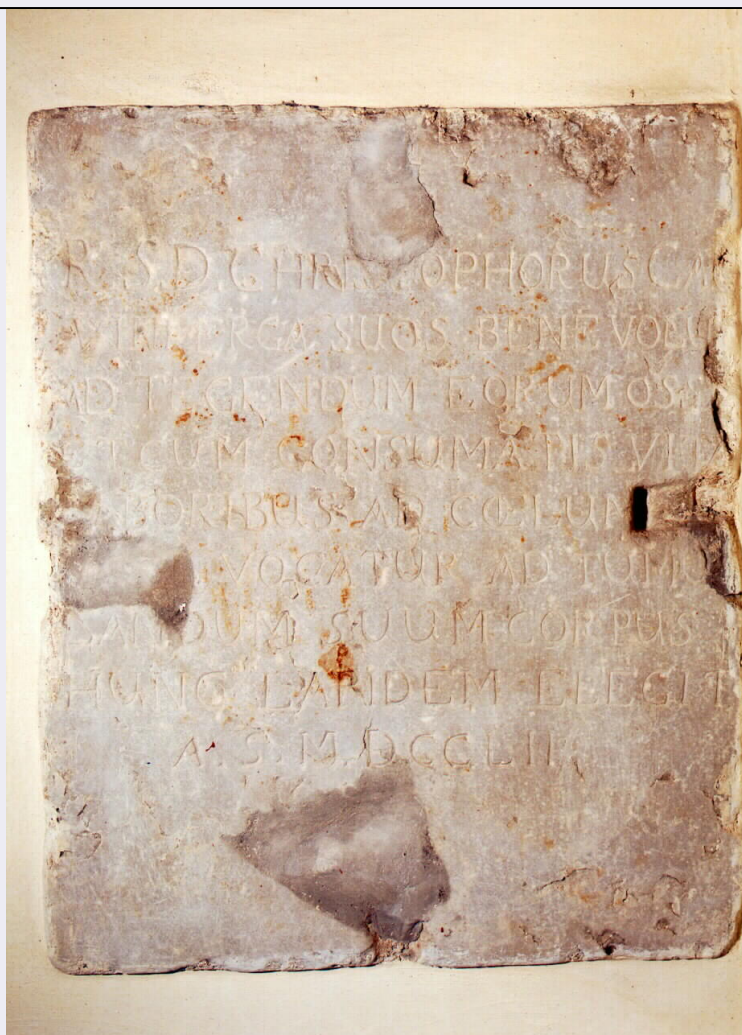 R. S. D. CHRISTOPHORUS CA
ERGA SUOS BENEVOLU
AD TEGENDUM EORUM OSS
UT CUM CONSUMATIS VITÆ
BORIBUS AD CŒLUM
VOCATUR AD TUMU
LANDUM SUUM CORPUS
HUNC LAPIDEM ELEGIT
A. S. M.DCCLII